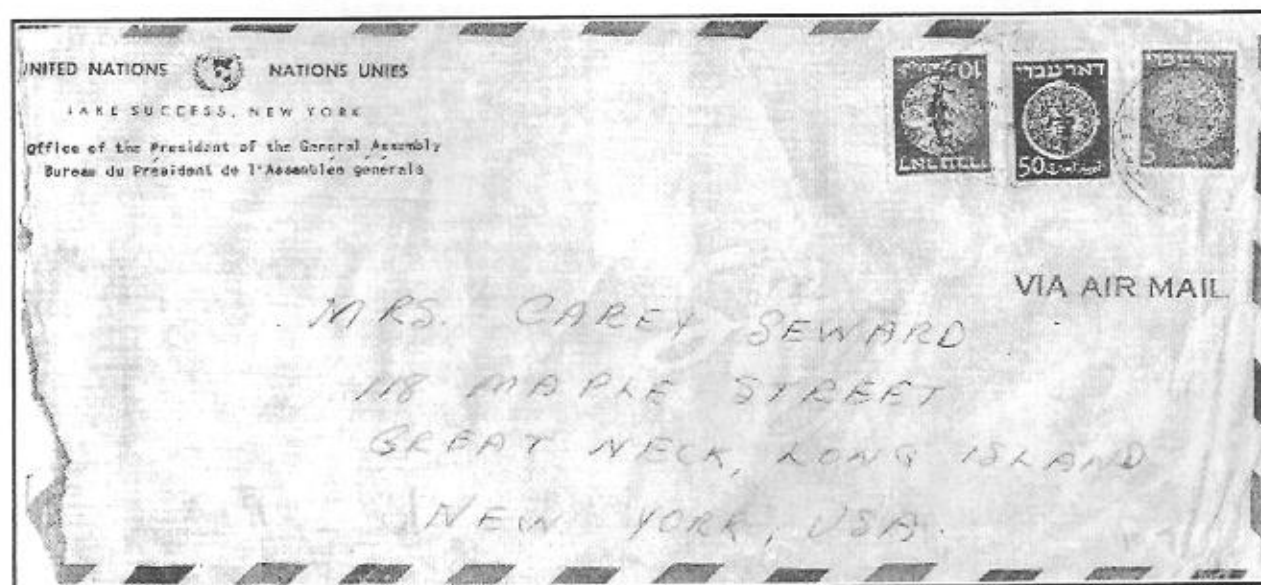 UNITED NATIONS NATIONS UNIES
LAKE SUCCESS, NEW YORK
Office of the President of the General Assembly
Bureau du Président de l'Assemblée générale
10
דאר עברי
50
דאר עברי
5
VIA AIR MAIL
MRS. CAREY SEWARD
118 MAPLE STREET
GREAT NECK, LONG ISLAND
NEW YORK, USA.